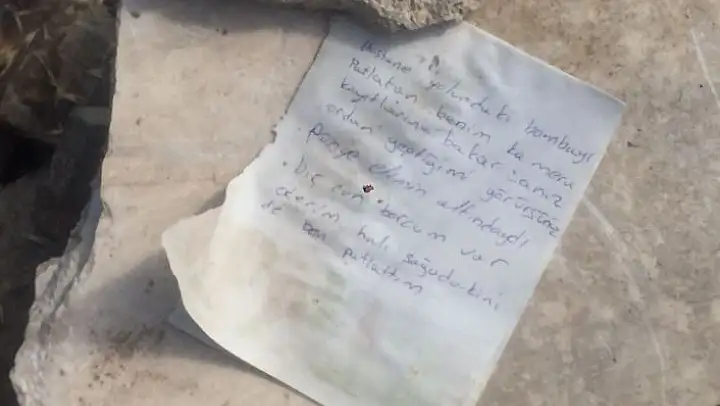 Hastane yolundaki bombayı
Patlatan benim ka mera
kayıtlarına bakar sanız
ordan geçtiğimi görürsünüz
Parça elimin altındaydı
bir can borcum var
derim hali sağında bini
de ben Patlattım